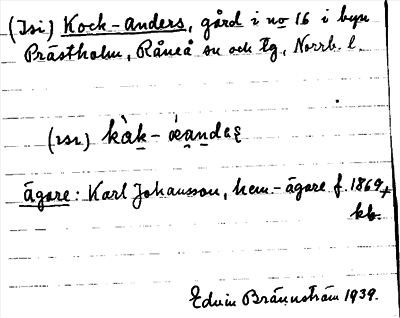 (Isi) Kock-Anders, gård i no 16 i byn
Prästholm, Råneå sn och tg, Norrb. l.
(isi) kàk-
Ägare: Karl Johansson, hem.-ägare f. 1869,
kb.
Edvin Brännström 1939.